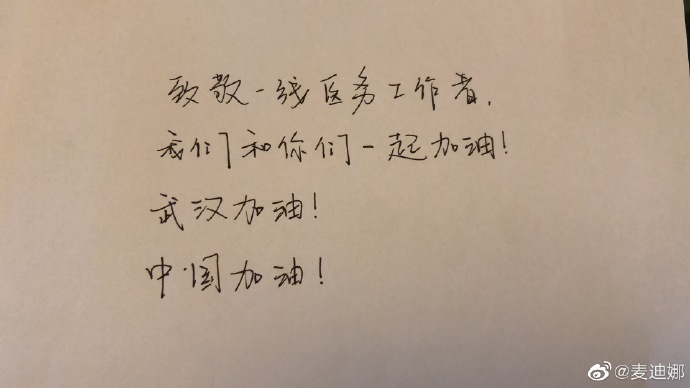 致敬一线医务工作者,
我们和你们一起加油!
武汉加油!
中国加油!
@麦迪娜